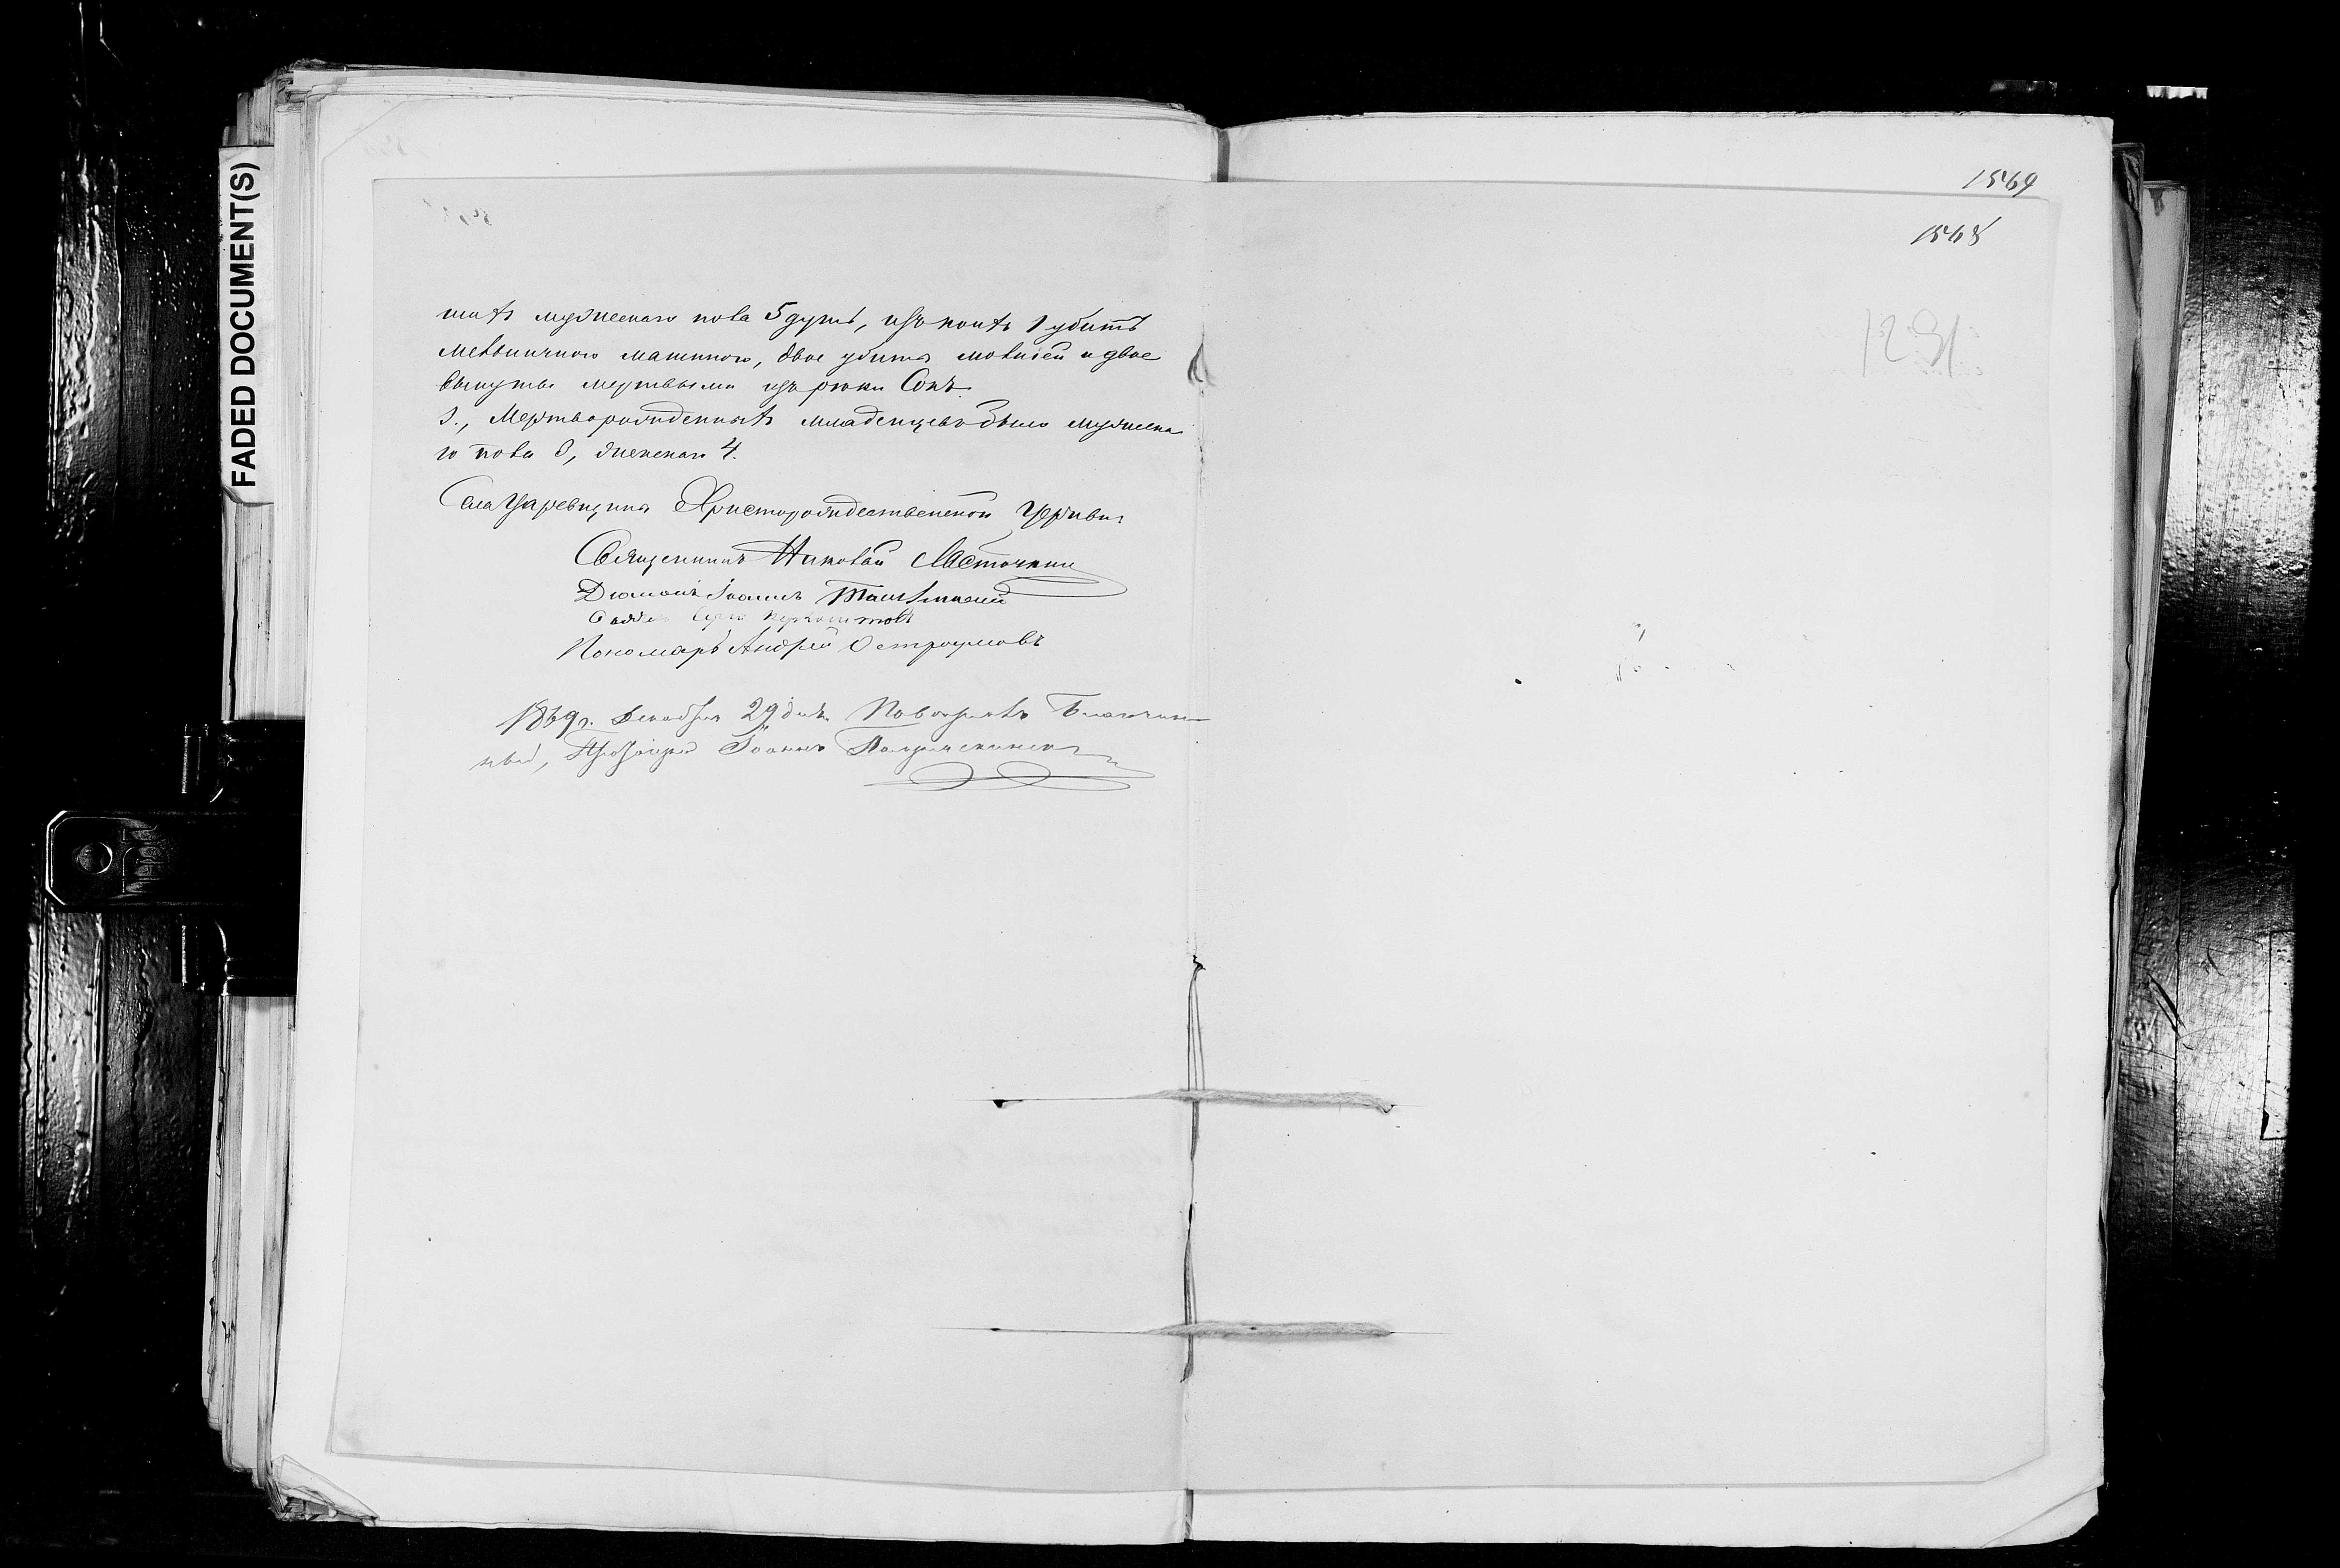 FADED DOCUMENT(S)
1569
1568
шихъ мужескаго пола 5 душъ, изъ коихъ 1 убитъ
мельничною машиною, двое убиты молніей и двое
вынуты мертвыми изъ рѣки Сокъ.
3., Мертворожденныхъ младенцевъ было мужеска
го пола 8, женскаго 4.
Села Царевщины Христорождественской церкви
Священникъ Николай Ласточкинъ
Діаконъ Іоаннъ
Пономарь Андрей Остроумовъ
1869 г. Декабря 29 дня. Повѣрялъ Благочин-
ный, Протоіерей Іоаннъ